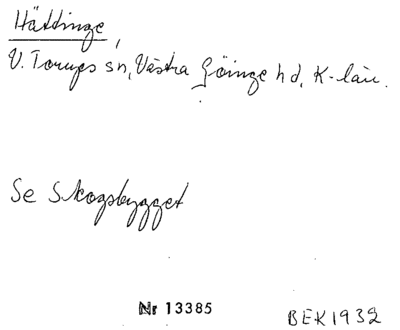 Hättinge,
V. Torups sn, Västra Göinge hd, K-län.
Se Skogsbygget
Nr 13385
BEK 1932